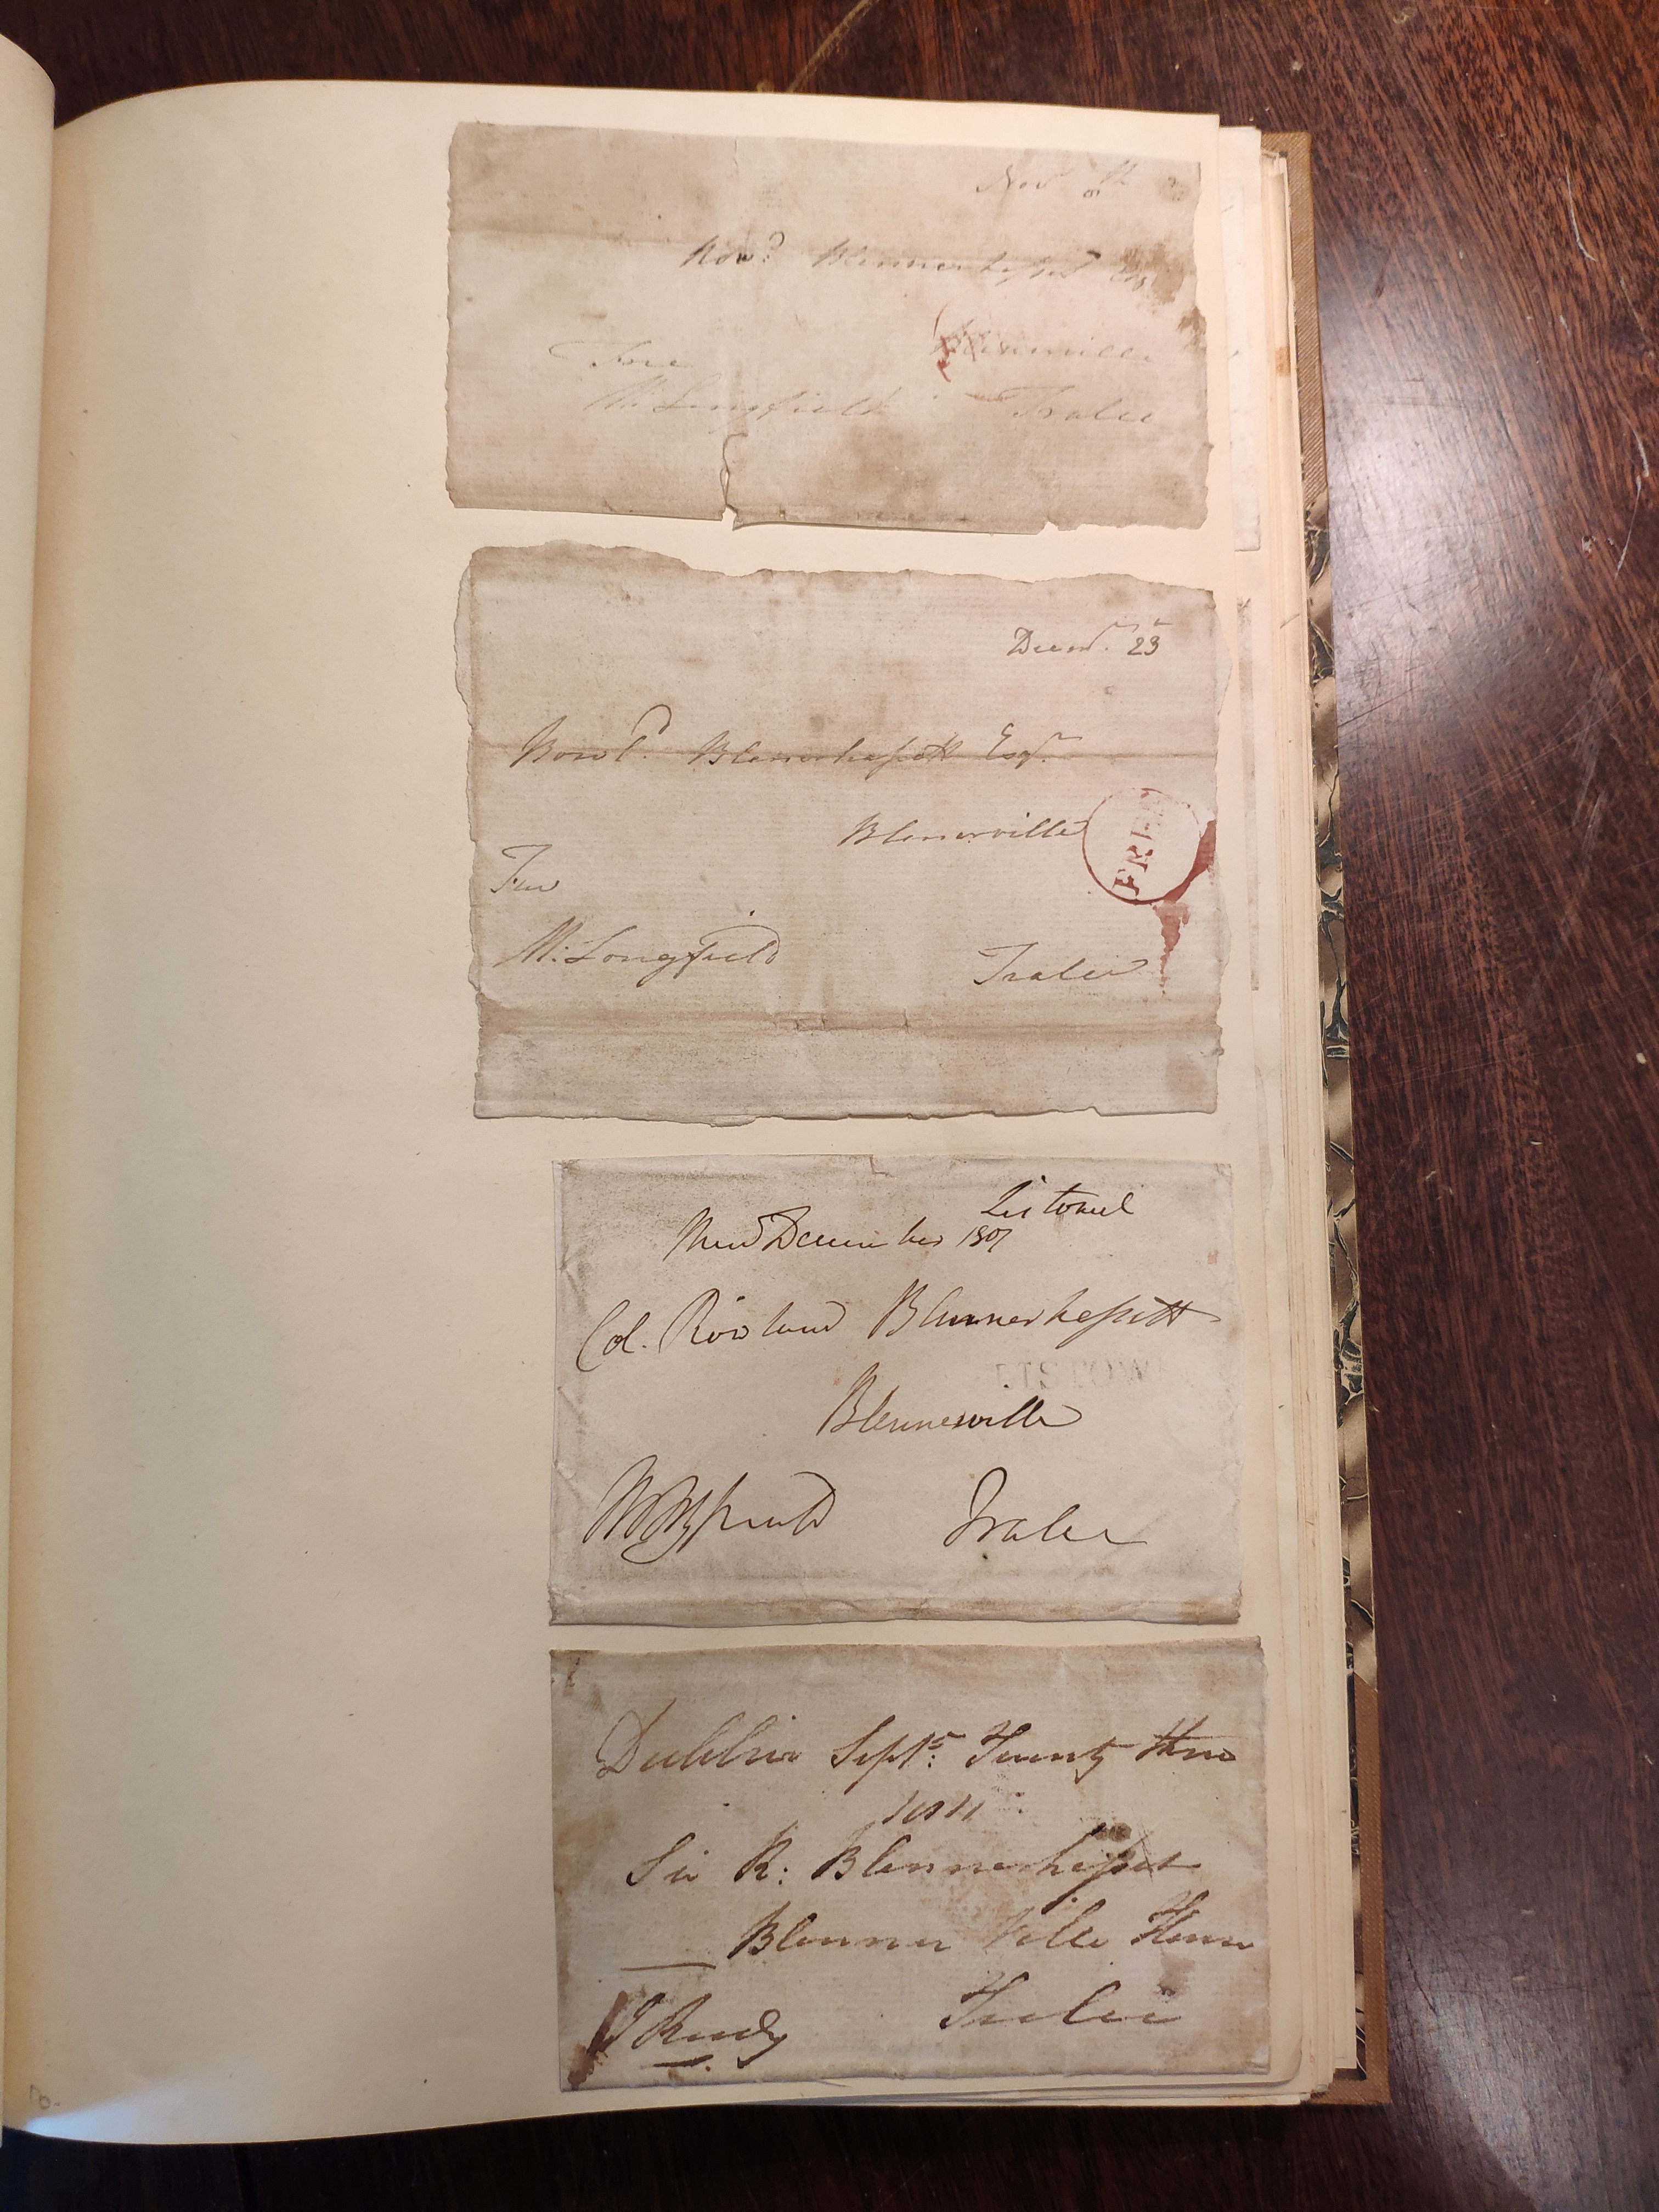 Nov 8th
Rowd Blennerhassett Esqr
Blennerville
Free
M: Longfield Tralee
Decmr. 23
Rowld. Blennerhassett Esqr.
Blennerville
FREE
Free
M: Longfield Tralee
Listowel
December 1807
Col. Rowland Blennerhassett
LISTOW
Blennerville
Tralee
Dublin Septr: Twenty three
1811
Sir R: Blennerhasset
Blenner Ville House
Tralee